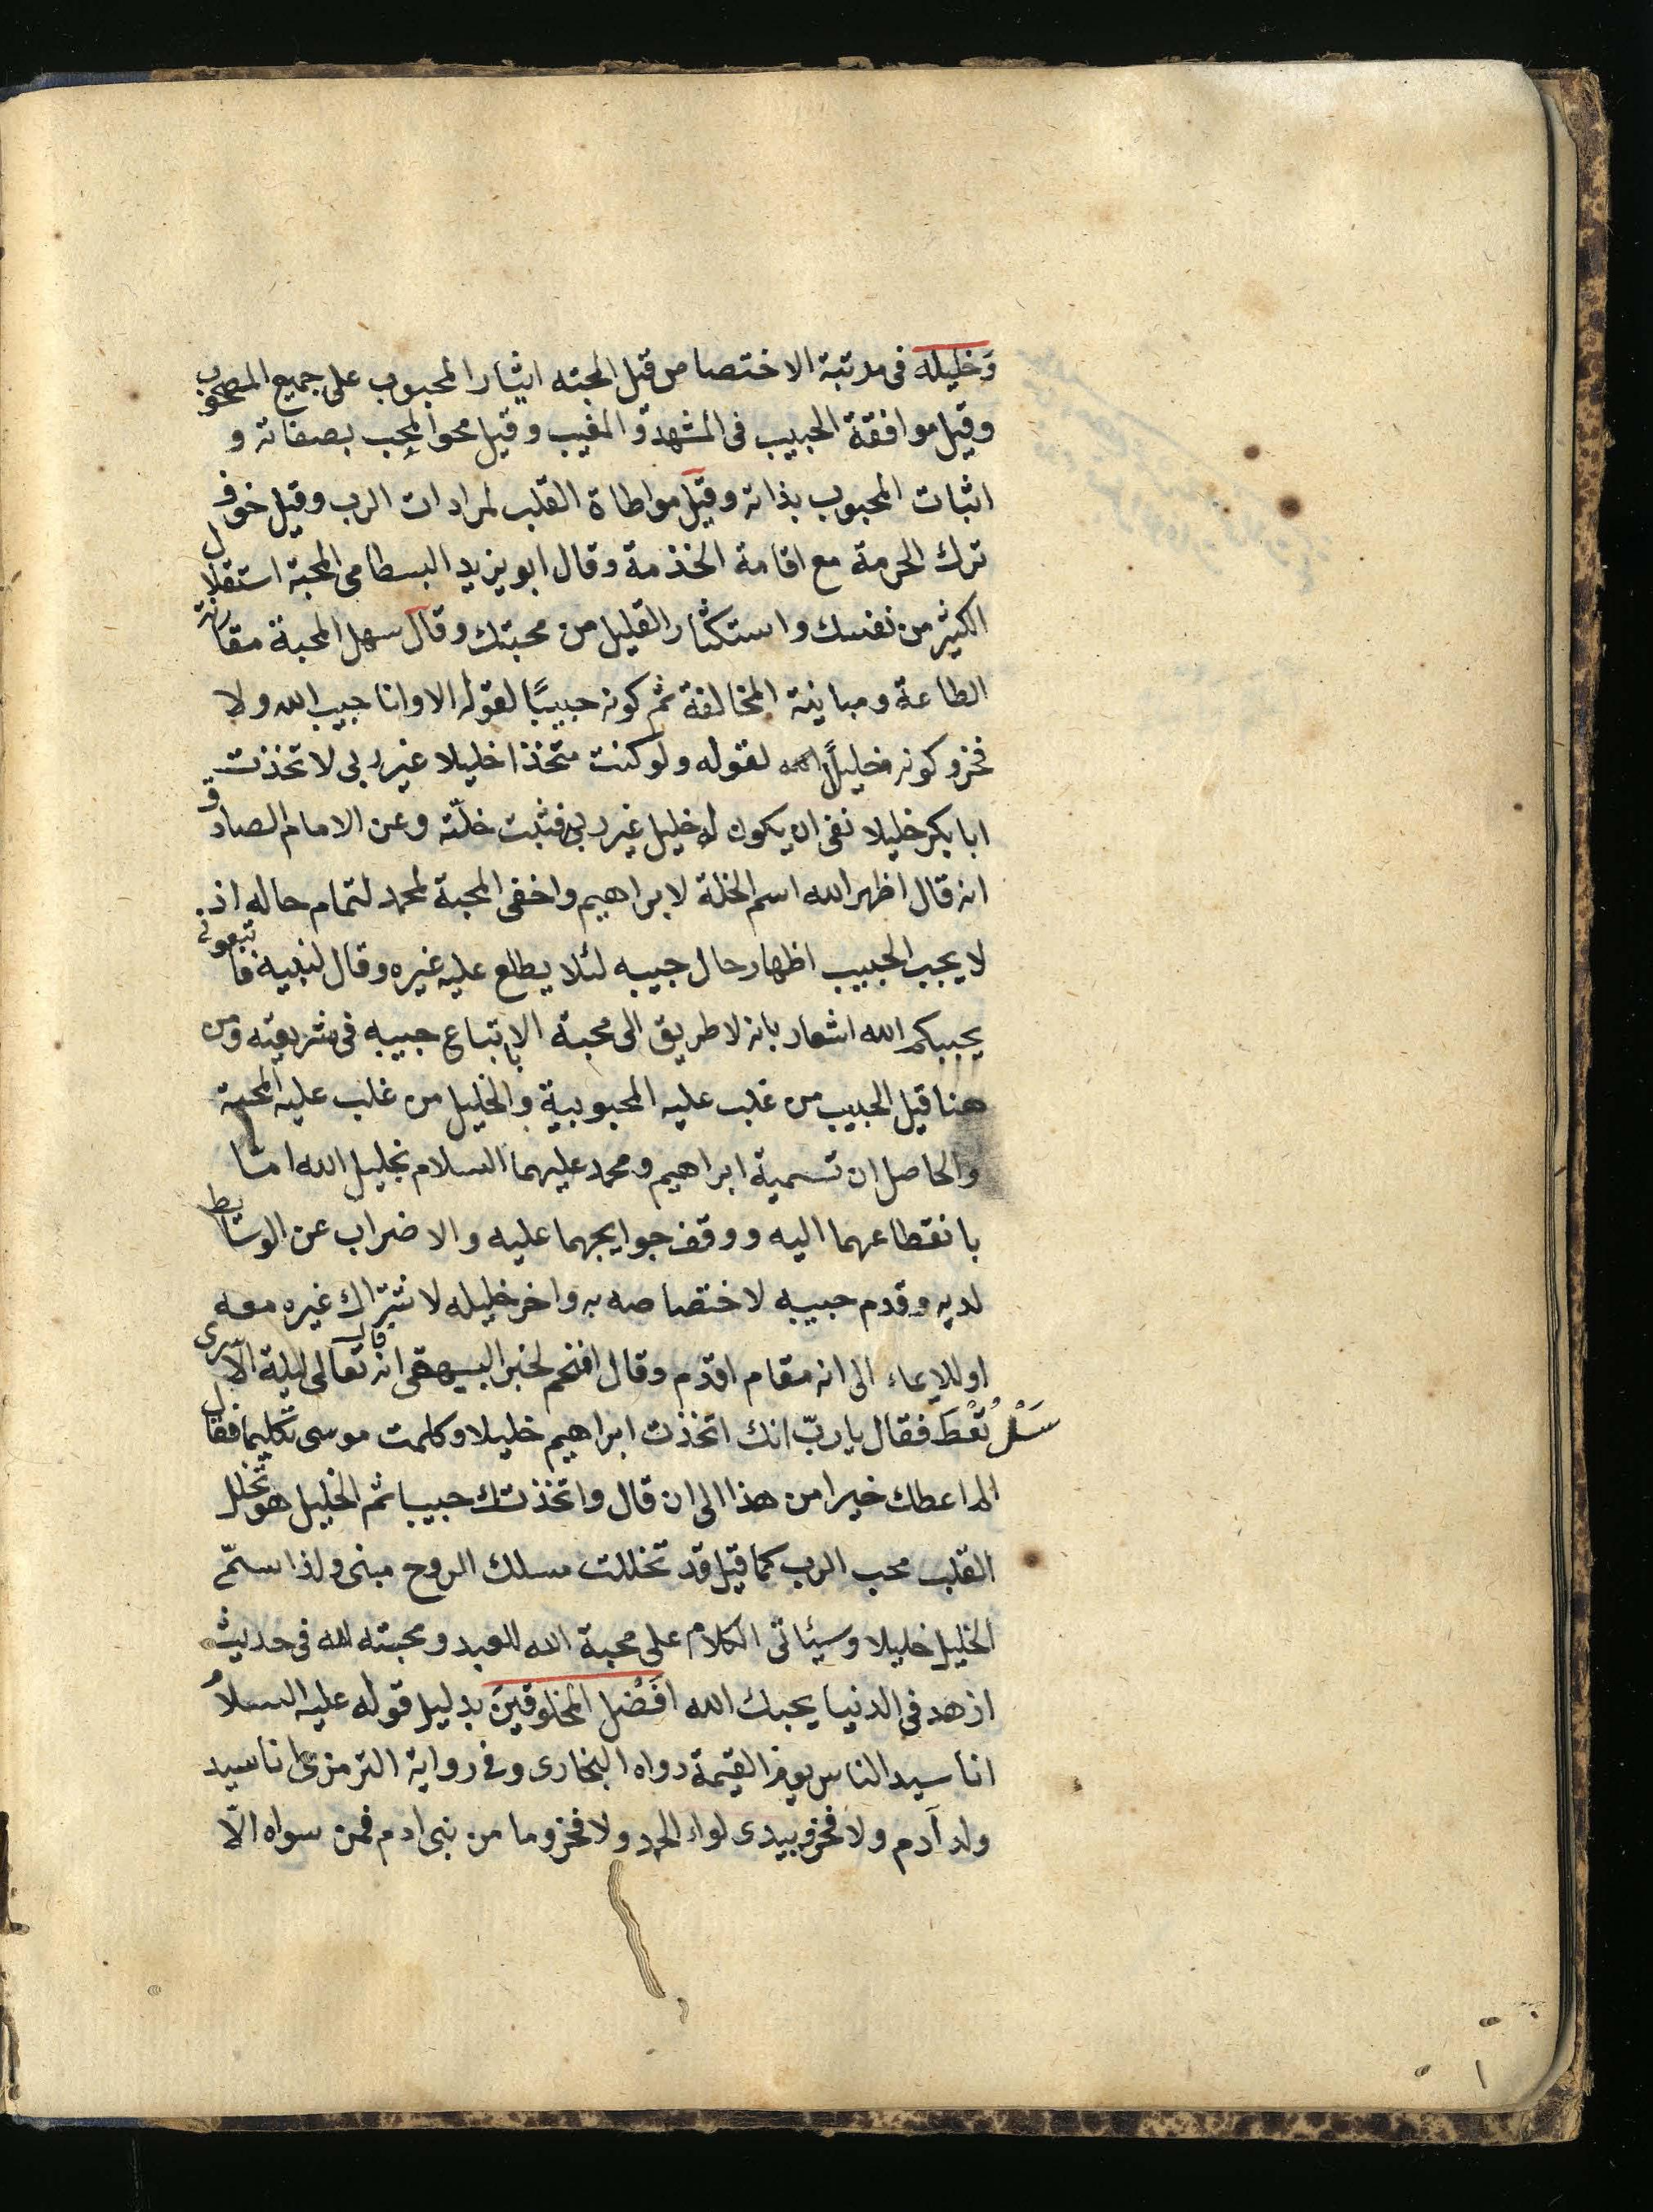 وَخليله فى مرتبة الاختصاص قيل المحبته ايثار المحبوب على جميع المصحوب
وقيل موافقة الحبيب فى المشهد و المغيب وقيل محو المحب بصفاته و
اثبات المحبوب بذاته وقيل مواطاة القلب لمرادات الرب وقيل خوف
ترك الحرمة مع اقامة الخذمة وقال ابو يزيد البسطامى المحبة استقلال
الكثير من نفسك واستكثار القليل من محبتك وقال سهل المحبة مقارنة
الطاعة ومباينة المخالفة ثم كونه حبيبًا لقوله الا وانا حبيب الله ولا
فخر وكونه خليلًا لقوله ولو كنت متخذا خليلا غير ربى لاتخذت
ابا بكر خليلا نفى ان يكون له خليل غير ربه فثبت خلّته وعن الامام الصادق
انه قال اظهر الله اسم الخلة لابراهيم واخفى المحبة لمحمد لتمام حاله اذ
لا يحب الحبيب اظهار حال حبيبه لئلا يطلع عليه غيره وقال لنبيه فاتبعونى
يحببكم الله اشعار بانه لا طريق الى محبة الا باتباع حبيبه فى شريعته ومن
هنا قيل الحبيب من غلب عليه المحبوبية والخليل من غلب عليه المحبية
والحاصل ان تسمية ابراهيم ومحمد عليهما السلام بخليل الله امّا
بانقطاعهما اليه ووقف حوايجهما عليه والاضراب عن الوسايط
لديه وقدم حبيبه لاختصاصه به واخر خليله لاشتراك غيره معه
او للايماء الى انه مقام اقدم وقال افخم لخبر البيهقى انه تعالى قال ليلة الاسرى
سَلْ تُعْطَ فقال يا ربّ انك اتخذت ابراهيم خليلا وكلمت موسى تكليما فقال
الم اعطك خيرا من هذا الى ان قال واتخذتك حبيبا ثم الخليل هو تخلل
القلب محب الرب كما قيل قد تخللت مسلك الروح منى ولذا سمّى
الخليل خليلا وسيئاتى الكلام على محبة الله للعبد ومحبته لله فى حديث
ازهد فى الدنيا يحبك الله افضل المخلوقين بدليل قوله عليه السلام
انا سيد الناس يوم القيمة رواه البخارى وفى رواية الترمزى انا سيد
ولد آدم ولا فخر وبيدى لواء الحمد ولا فخر وما من نبى ادم فمن سواه الّا
١